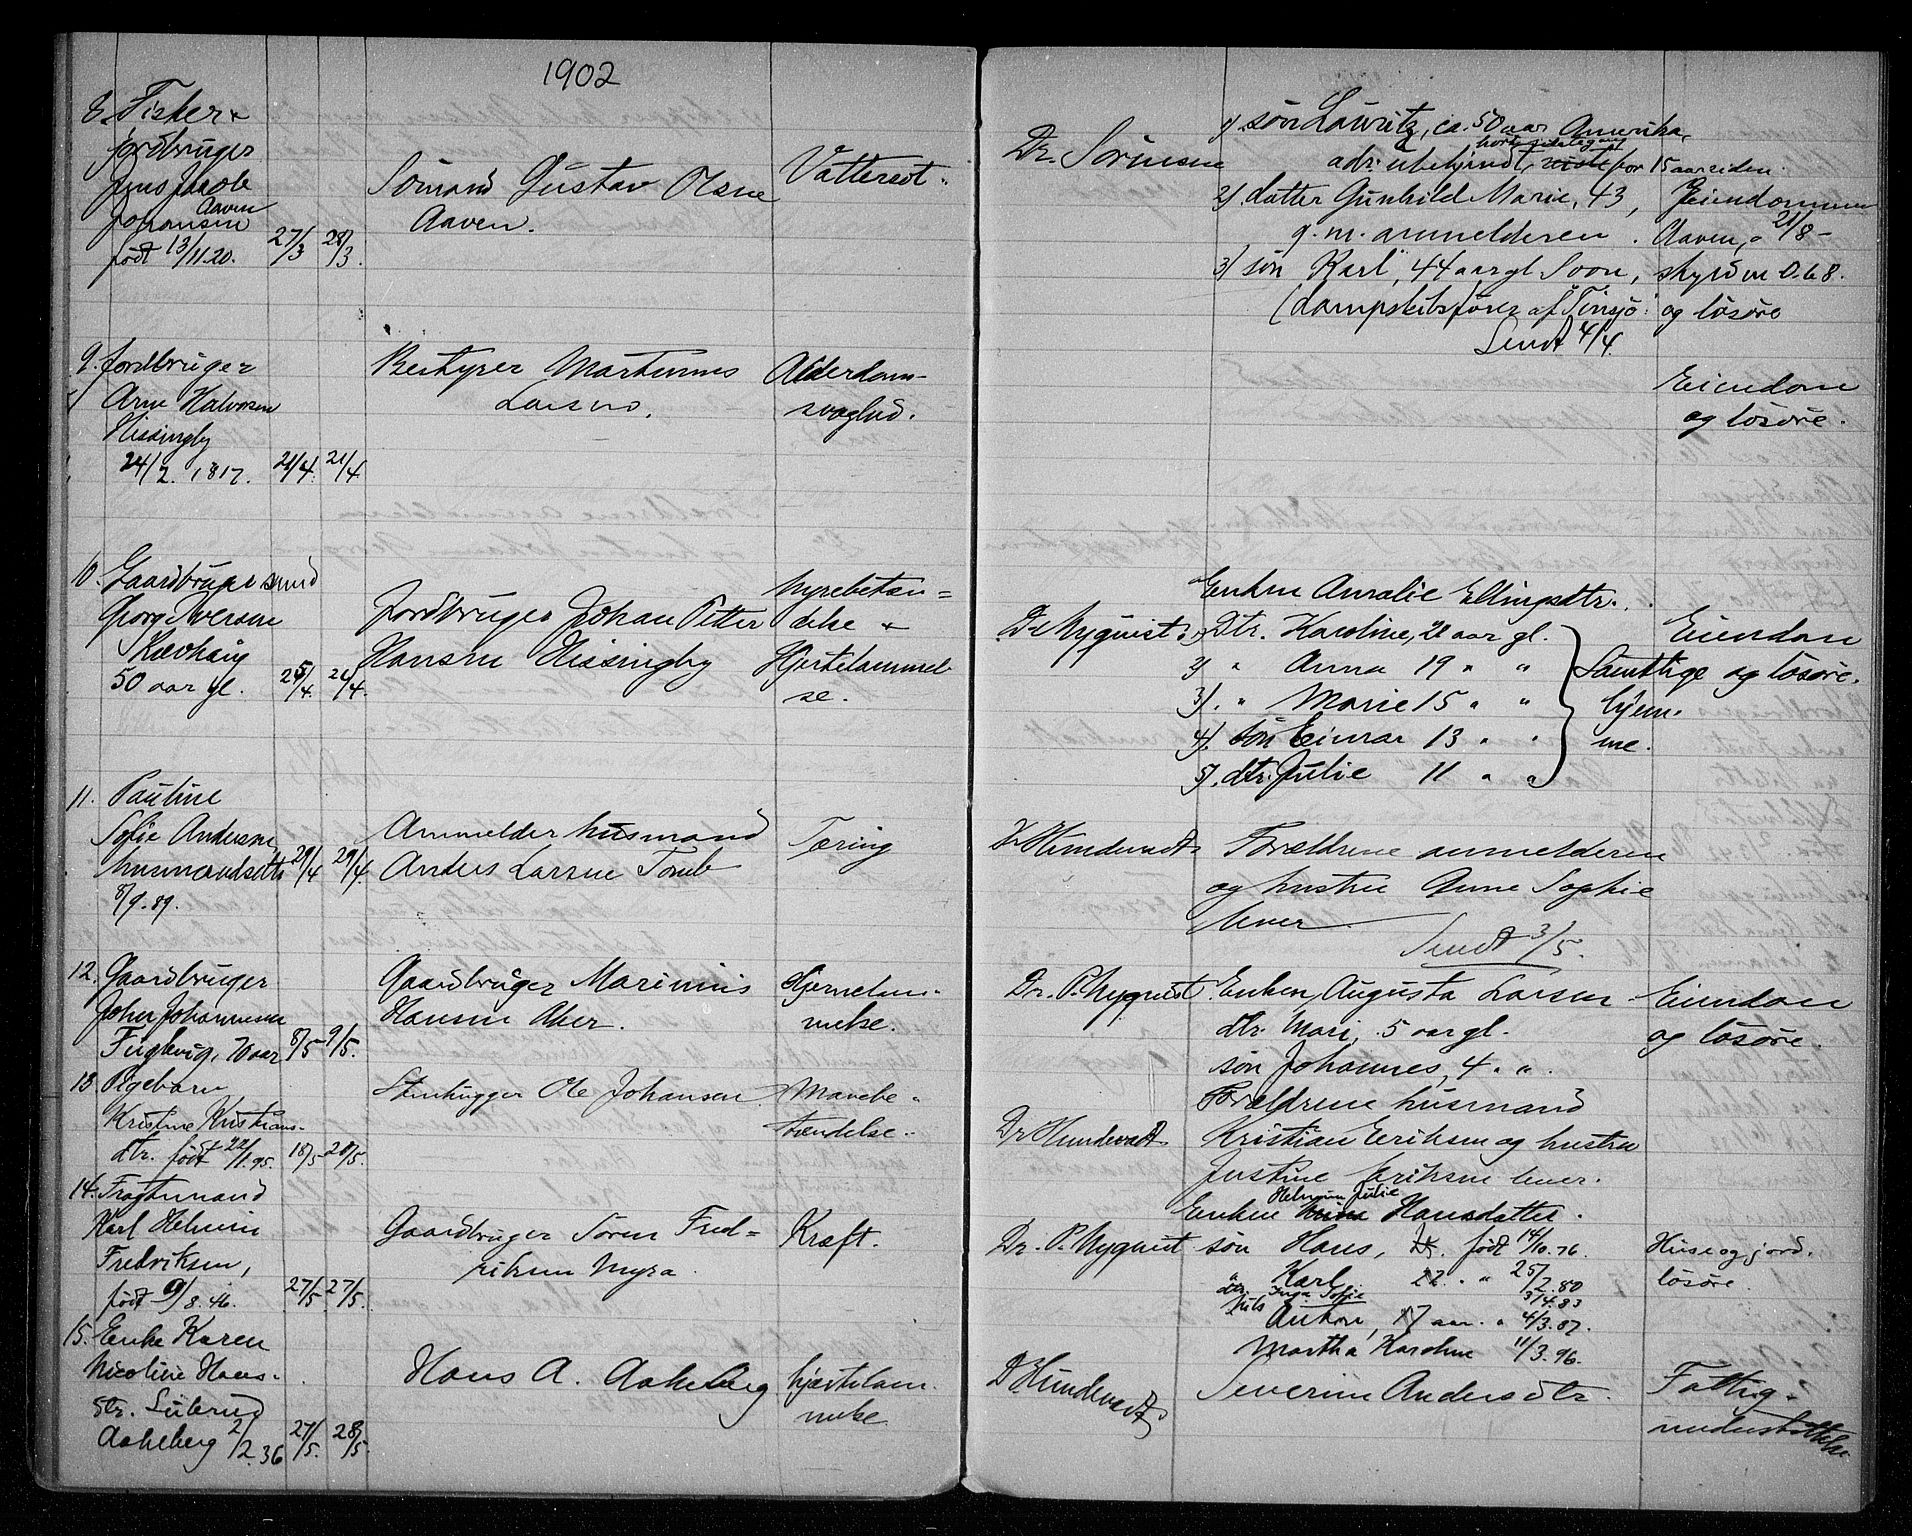 1902
8. Fisker &
jordbruger
Jens Jacob
Aaven
Johansen
født 13/11.20. 27/3 28/3
Sømand Gustav Olsen
Aaven.
Vattersot.
Dr. Sørensen
1) søn Lauritz, ca. 50 aar Amerika,
adr. ubekjendt, for 15 aar siden.
2) datter Gunhild Marie, 43,
g. m. anmelderen.
3) søn Karl, 44 aar gl Soon,
(dampskibsfører af "Tinsjø"
Sendt 4/4.
Eiendommen
Aaven, 21/8 -
skyld m 0.68.
og løsøre
9. Jordbruger
Arne Halvorsen
Hissingby
24/2. 1817. 21/4. 21/4
Bestyrer Martinius
Larsen.
Alderdom-
svaghed.
Eiendom
og løsøre.
10. Gaardbruger
Georg Iversen
50 aar gl. 25/4. 26/4.
Jordbruger Johan Petter
Hansen Hissingby
Nyrebetæn=
delse &
Hjertelammel-
se.
Dr Nyquist
Enken Amalie Ellingsdtr.
1) Dtr. Karoline, 21 aar gl.
2) " Anna 19 " "
3). " Marie 15 " "
4). søn Einar 13 " "
5). dtr. Julie 11 " "
Samtlige
hjem-
me.
Eiendom
og løsøre.
11. Pauline
Sofie Andersen,
husmandsdtr 29/4 29/4.
8/9.89.
Anmelder husmand
Anders Larsen Tomb
Tæring
Dr Hundevadt
Forældrene anmelderen
og hustru Anne Sophie
lever
Sendt 3/5.
12. Gaardbruger
Johan Johannesen
Fuglevig, 70 aar 8/5 9/5.
Gaardbruger Marinius
Hansen Aker.
Hjernelam-
melse.
Dr. P. Nyquist
Enken Augusta Larsen
dtr. Mari, 5 aar gl.
søn Johannes, 4 " ".
Eiendom
og løsøre.
13 Pigebarn
Kristine Kristians-
dtr. født 22/1.95. 18/5 20/5.
Stenhugger Ole Johansen
Mavebe-
tændelse.
Dr Hundevadt
Forældrene husmand
Kristian Eriksen og hustru
Justine Eriksen lever.
14. Fragtemand
Karl Helmin
Fredriksen,
født 9/8.46. 27/5. 27/5.
Gaardbruger Søren Fred-
riksen Myra.
Kræft.
Dr. P. Nyquist
Helmine Julie
Enken Hansdatter.
søn Hans, født 14/10.76.
" Karl 22. " 25/2.80
dtr. Inga Sofie 3/4.83
Anton, 17 aar. " 4/3.87.
Martha Karoline 11/3.96.
Huse og jord.
løsøre.
15. Enke Karen
Nicoline Hans-
dtr. Lilerud
Aakeberg 2/2.36 27/5. 28/5.
Hans A. Aakeberg
hjertelam-
melse
Dr Hundevadt
Severine Andersdtr.
Fattig-
understøttelse.